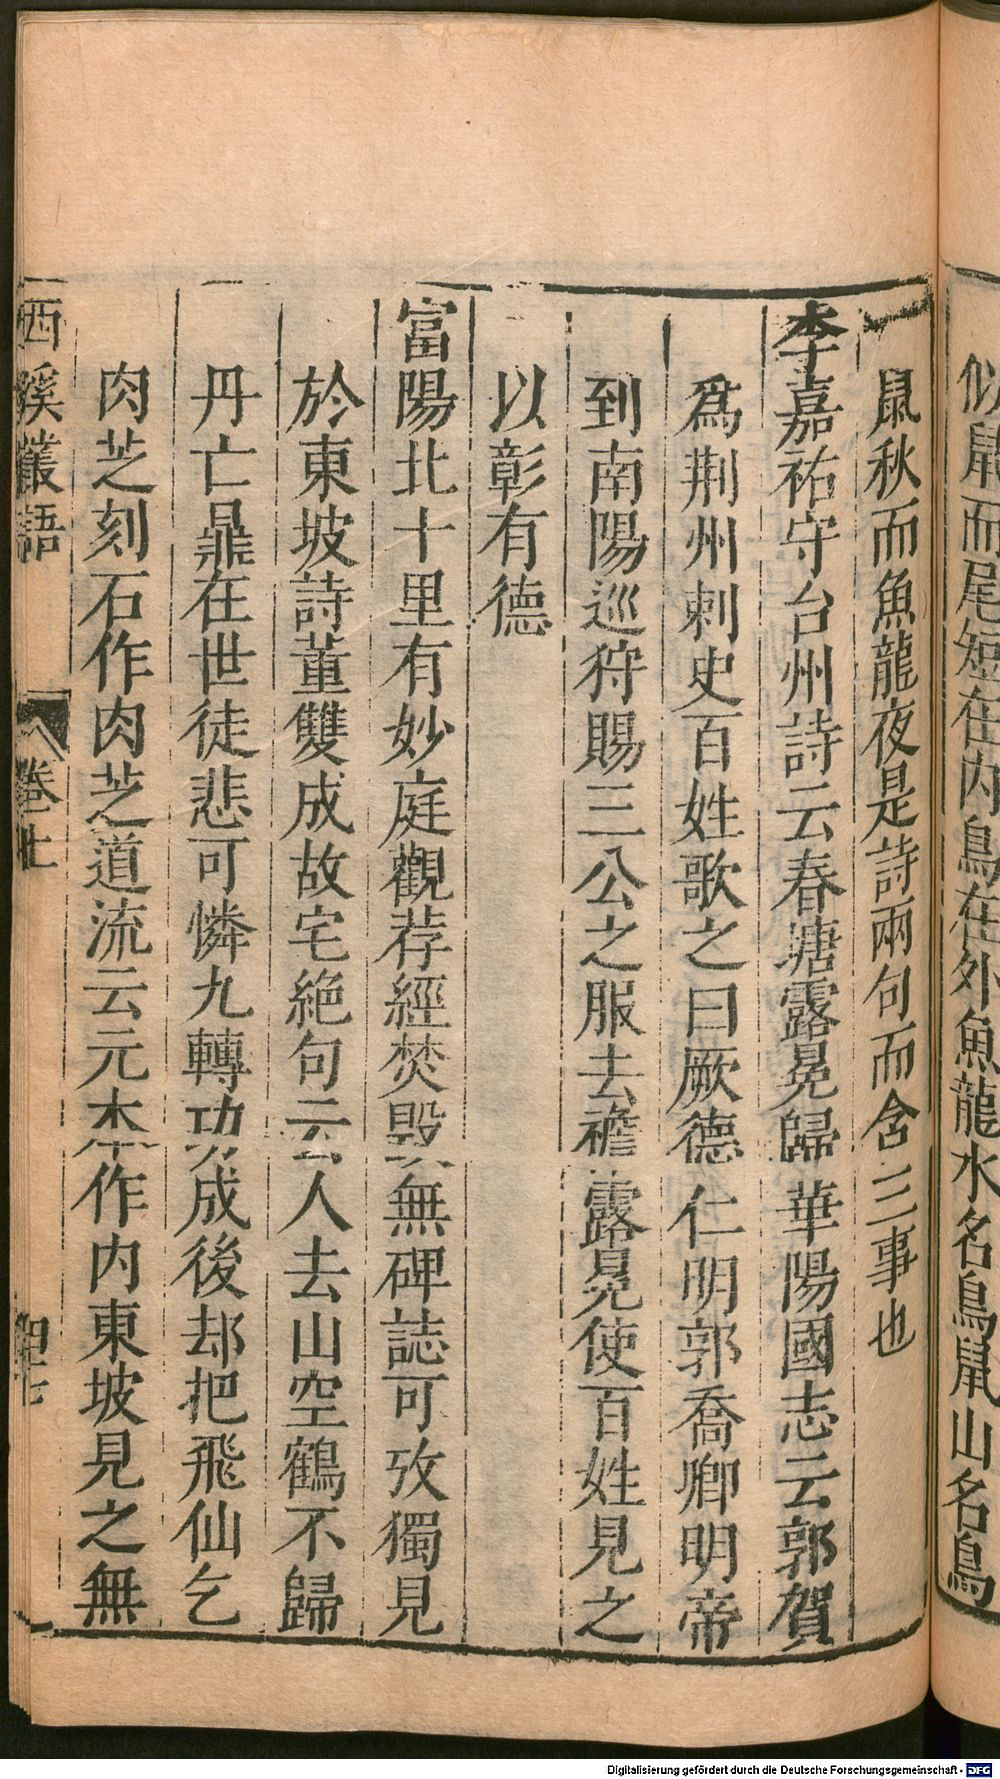 似鼠而尾短在内鳥在外魚龍水名鳥鼠山名鳥
鼠秋而魚龍夜是詩兩句而含三事也
李嘉祐守台州詩云春塘露冕歸華陽國志云郭賀
爲荆州刺史百姓歌之曰厥德仁明郭喬卿明帝
到南陽巡狩賜三公之服去襜露冕使百姓見之
以彰有德
富陽北十里有妙庭觀荐經焚毁無碑誌可攷獨見
於東坡詩董雙成故宅絶句云人去山空鶴不歸
丹亡鼎在世徒悲可憐九轉功成後却把飛仙乞
肉芝刻石作肉芝道流云元本作内東坡見之無
西溪叢語
卷上
四十七
Digitalisierung gefördert durch die Deutsche Forschungsgemeinschaft - DFG